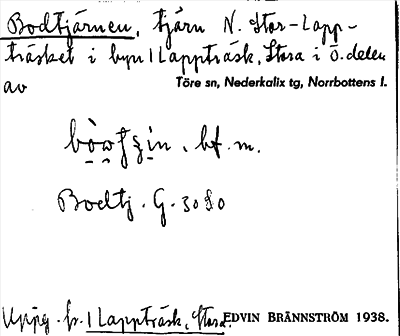 Bodtjärnen, tjärn N. Stor-Lapp-
träsket i byn Lappträsk, Stora i Ö. delen
av
Töre sn, Nederkalix tg, Norrbottens l.
bf. m.
Bodtj. G. 3080
Uppg. fr. Lappträsk, Stora.
EDVIN BRÄNNSTRÖM 1938.